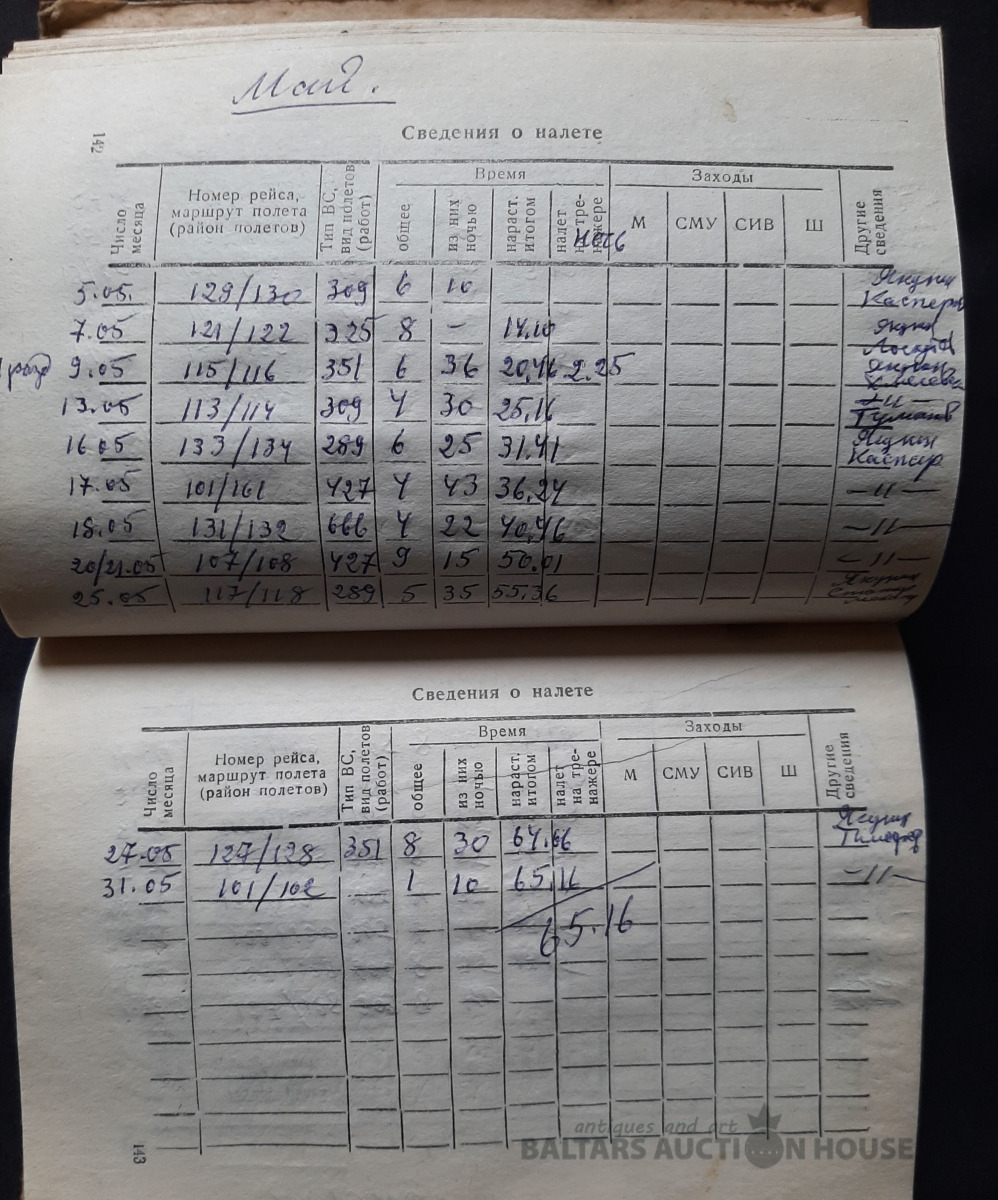 Май.
142
Сведения о налете
Число месяца
Номер рейса, маршрут полета (район полетов)
Тип ВС, вид полетов (работ)
Время
общее
из них ночью
нараст. итогом
налет на тренажере
ночь
Заходы
М СМУ СИВ Ш
Другие сведения
5.05. 129/130 309 6 10
Каспер
7.05 121/122 325 8 – 14.10
9.05 115/116 351 6 36 20,46 2.25
13.05 113/114 309 4 30 25,16 –〃– Туманов
16.05 133/134 289 6 25 31.41
Каспер
17.05 101/101 427 4 43 36,24 –〃–
18.05 131/132 666 4 22 40,46 –〃–
20/21.05 107/108 427 9 15 50.01 –〃–
25.05 117/118 289 5 35 55,36
Сведения о налете
Число месяца
Номер рейса, маршрут полета (район полетов)
Тип ВС, вид полетов (работ)
Время
общее
из них ночью
нараст. итогом
налет на тренажере
Заходы
М СМУ СИВ Ш
Другие сведения
27.05 127/128 351 8 30 64.06
31.05 101/102 1 10 65,16 –〃–
65.16
143
antiques and art
BALTARS AUCTION HOUSE